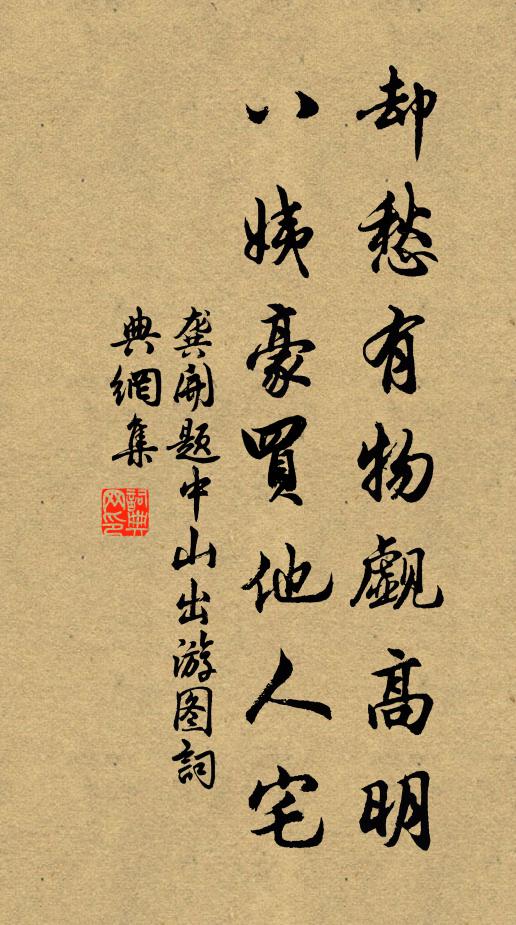 却愁有物覷高明
八姨豪買他人宅
龔開題中山出游图詞
典網集
詞典
网印